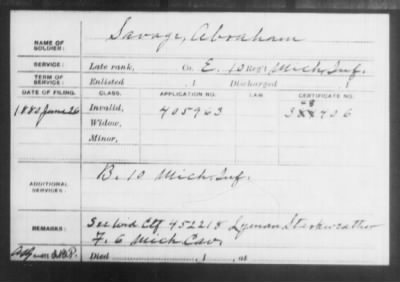 NAME OF SOLDIER: Savage, Abraham
SERVICE: Late rank, Co. E. 10 Reg't Mich. Inf.
TERM OF SERVICE: Enlisted , 1 Discharged , 1
DATE OF FILING. CLASS. APPLICATION NO. LAW. CERTIFICATE NO.
1880 June 26 Invalid, 405963 706
Widow,
Minor,
ADDITIONAL SERVICES: B. 10 Mich. Inf.
REMARKS: See Wid. Ctf. 452215 Lyman Starkweather
F. 6 Mich Cav.
Died , 1 , at